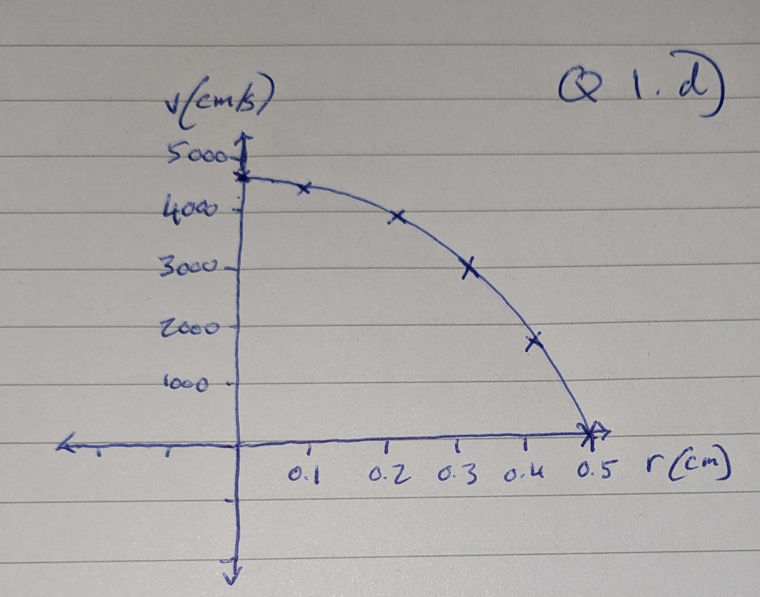 Q 1. d)
v(cm/s)
5000
4000
3000
2000
1000
0.1 0.2 0.3 0.4 0.5 r(cm)